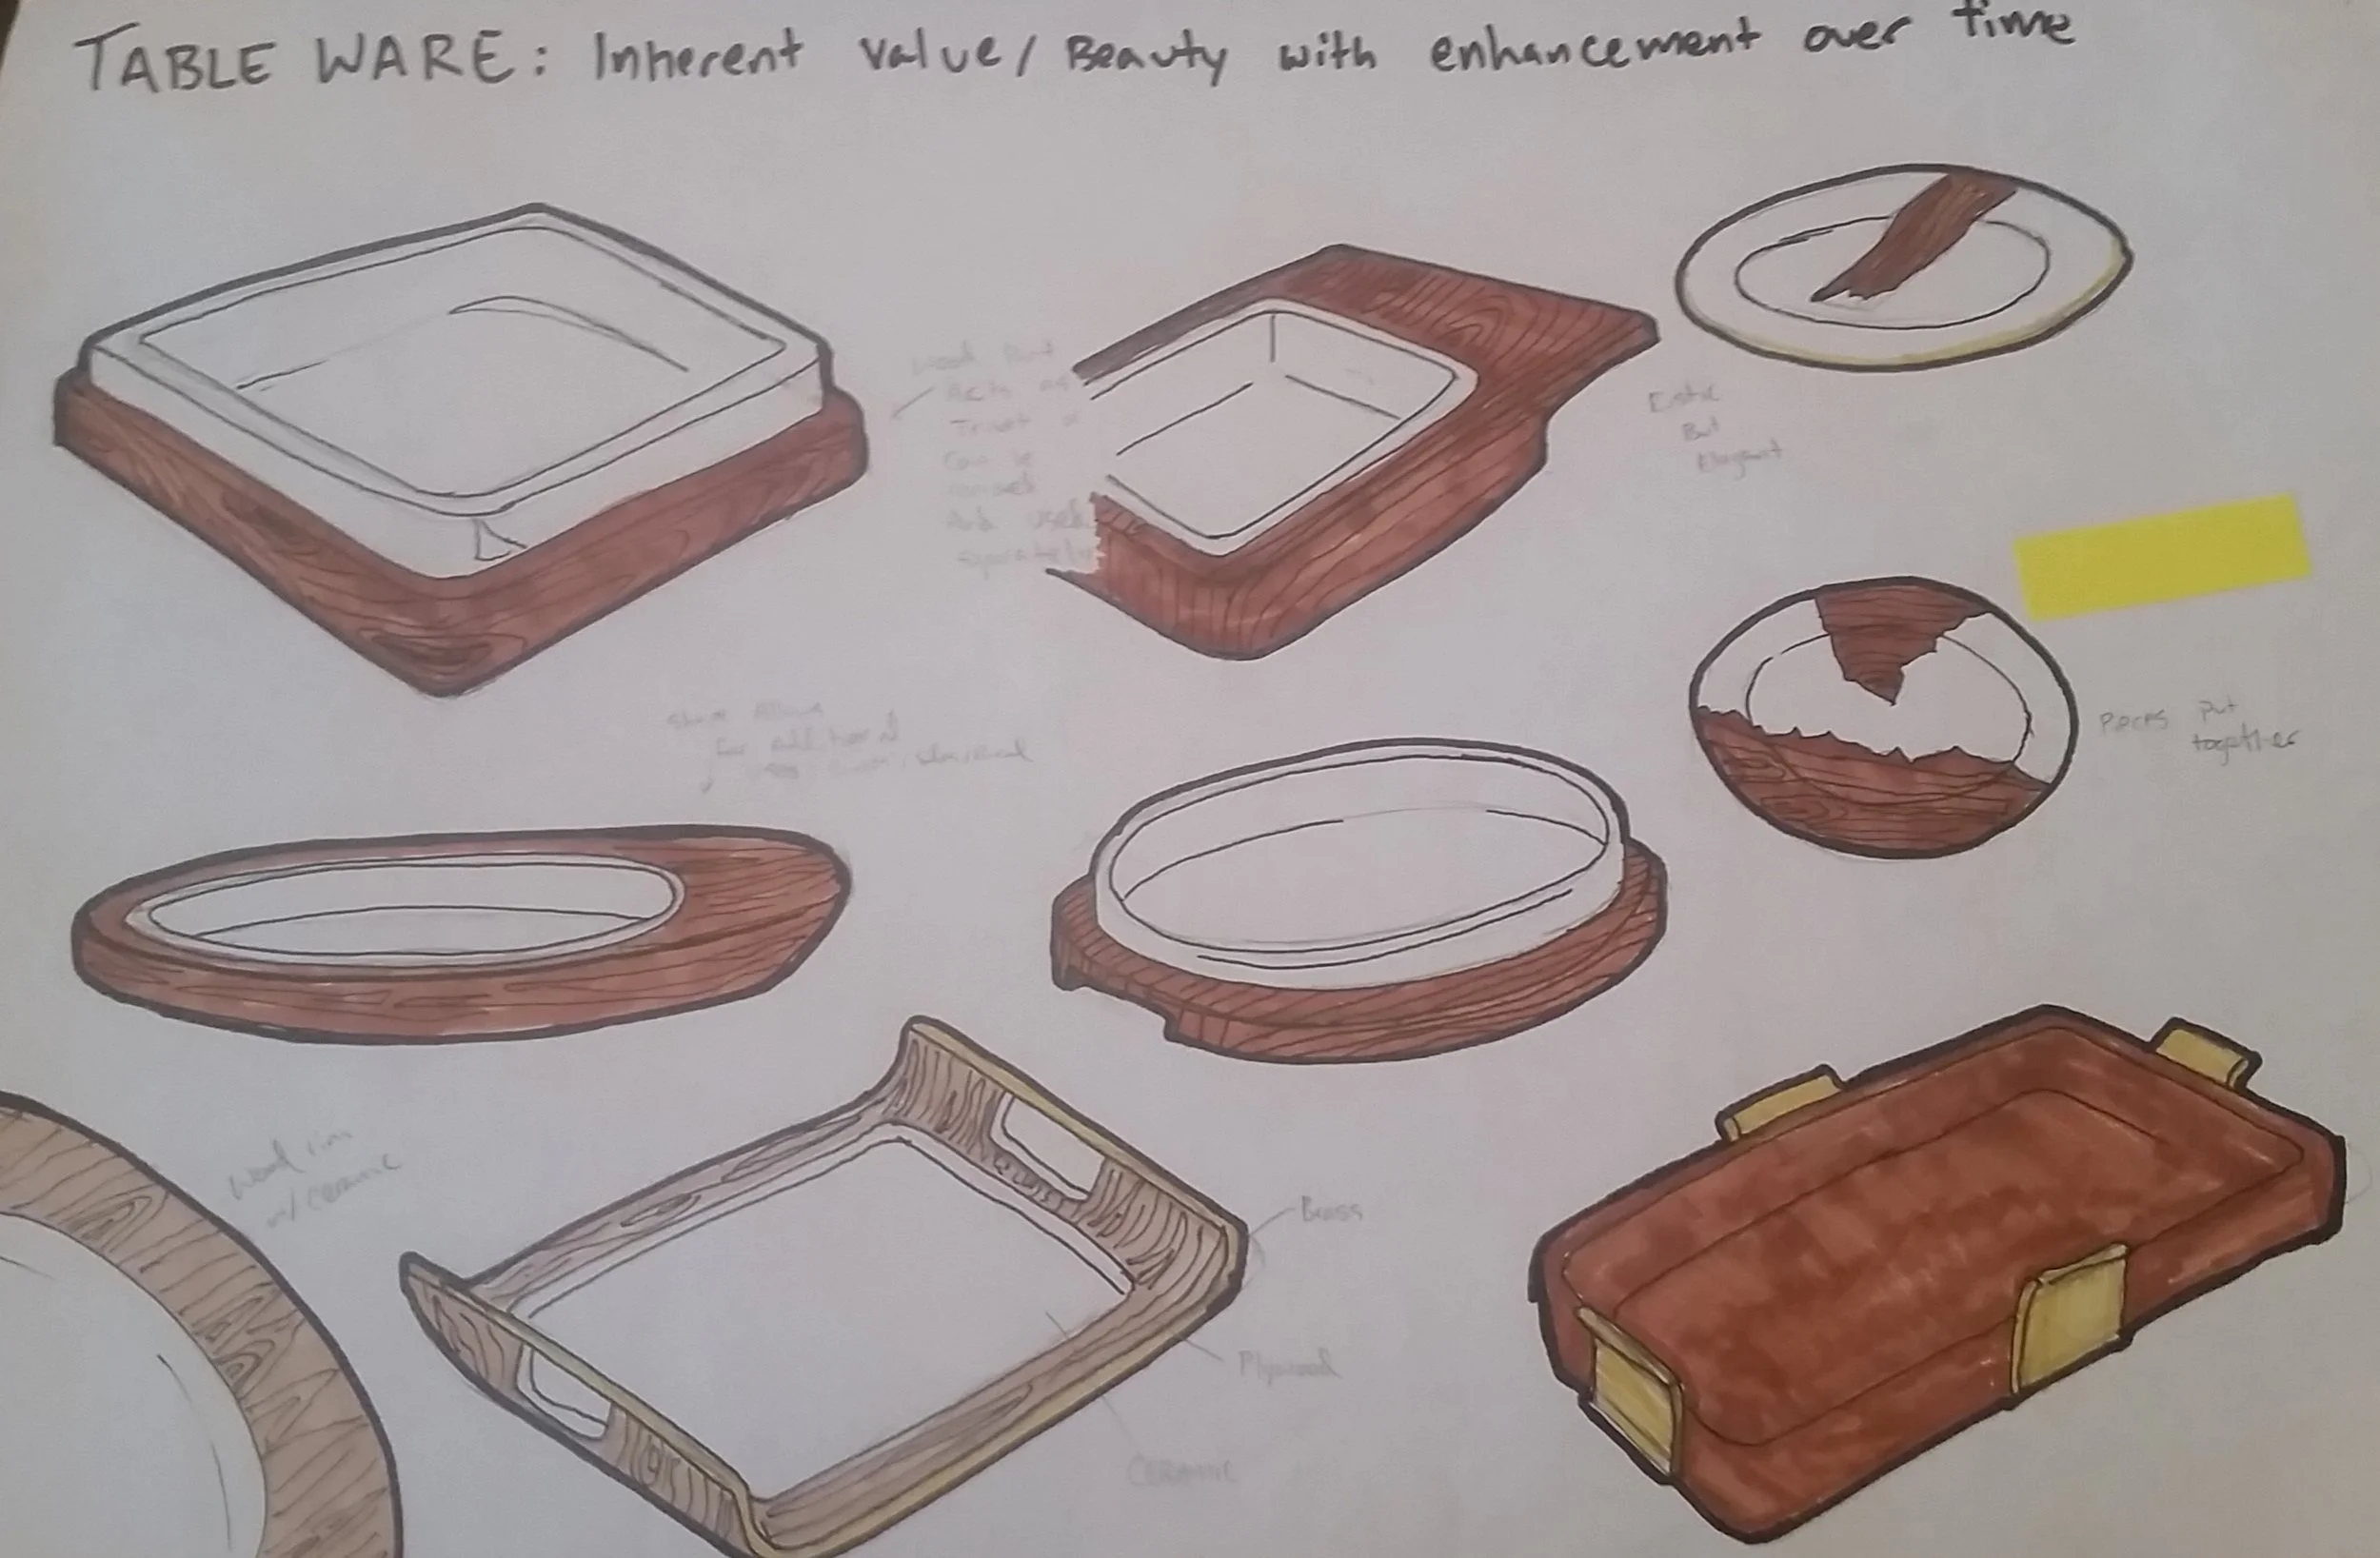 TABLE WARE: Inherent value/Beauty with enhancement over time
Wood Part
Acts as
Trivet or
Can be
And used
separately
But
Elegant
Pieces put
together
for additional
Wood rim
w/ ceramic
Brass
Plywood
CERAMIC